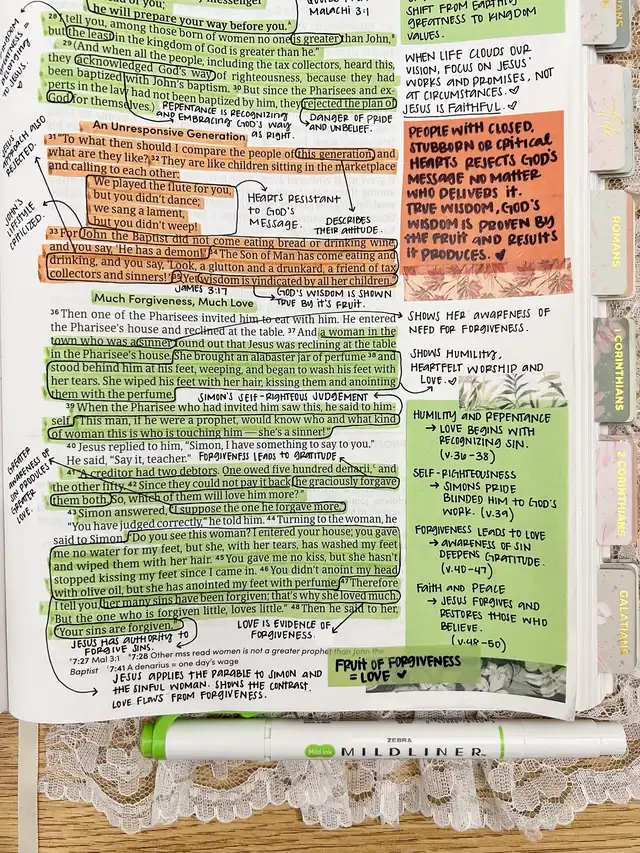 he will prepare your way before you.
MALACHI 3:1
28 I tell you, among those born of women no one is greater than John,
but the least in the kingdom of God is greater than he."
29 (And when all the people, including the tax collectors, heard this,
they acknowledged God's way of righteousness, because they had
been baptized with John's baptism. 30 But since the Pharisees and ex-
perts in the law had not been baptized by him, they rejected the plan of
God for themselves.)
REPENTANCE IS RECOGNIZING
AND EMBRACING GOD'S WAY
AS RIGHT.
DANGER OF PRIDE
AND UNBELIEF.
JESUS'
APPROACH ALSO
REJECTED.
JOHN'S
LIFESTYLE
CRITICIZED.
An Unresponsive Generation
31 "To what then should I compare the people of this generation, and
what are they like? 32 They are like children sitting in the marketplace
and calling to each other:
We played the flute for you,
but you didn't dance;
we sang a lament,
but you didn't weep!
HEARTS RESISTANT
TO GOD'S
MESSAGE.
DESCRIBES
THEIR ATTITUDE.
33 For John the Baptist did not come eating bread or drinking wine,
and you say, 'He has a demon!' 34 The Son of Man has come eating and
drinking, and you say, 'Look, a glutton and a drunkard, a friend of tax
collectors and sinners!' 35 Yet wisdom is vindicated by all her children."
JAMES 3:17
GOD'S WISDOM IS SHOWN
TRUE BY IT'S FRUIT.
Much Forgiveness, Much Love
36 Then one of the Pharisees invited him to eat with him. He entered
the Pharisee's house and reclined at the table. 37 And a woman in the
town who was a sinner found out that Jesus was reclining at the table
in the Pharisee's house. She brought an alabaster jar of perfume 38 and
stood behind him at his feet, weeping, and began to wash his feet with
her tears. She wiped his feet with her hair, kissing them and anointing
them with the perfume.
SIMON'S SELF-RIGHTEOUS JUDGEMENT
39 When the Pharisee who had invited him saw this, he said to him-
self, "This man, if he were a prophet, would know who and what kind
of woman this is who is touching him—she's a sinner!"
40 Jesus replied to him, "Simon, I have something to say to you."
He said, "Say it, teacher."
FORGIVENESS LEADS TO GRATITUDE
41 "A creditor had two debtors. One owed five hundred denarii, and
the other fifty. 42 Since they could not pay it back, he graciously forgave
them both. So, which of them will love him more?"
43 Simon answered, "I suppose the one he forgave more."
"You have judged correctly," he told him. 44 Turning to the woman, he
said to Simon, "Do you see this woman? I entered your house; you gave
me no water for my feet, but she, with her tears, has washed my feet
and wiped them with her hair. 45 You gave me no kiss, but she hasn't
stopped kissing my feet since I came in. 46 You didn't anoint my head
with olive oil, but she has anointed my feet with perfume. 47 Therefore
I tell you, her many sins have been forgiven; that's why she loved much.
But the one who is forgiven little, loves little." 48 Then he said to her,
"Your sins are forgiven."
GREATER
AWARENESS OF
SIN PRODUCES
GREATER
LOVE.
JESUS HAS AUTHORITY TO
FORGIVE SINS.
LOVE IS EVIDENCE OF
FORGIVENESS.
7:27 Mal 3:1 7:28 Other mss read women is not a greater prophet than John the
Baptist 7:41 A denarius = one day's wage
JESUS APPLIES THE PARABLE TO SIMON AND
THE SINFUL WOMAN. SHOWS THE CONTRAST.
LOVE FLOWS FROM FORGIVENESS.
SHIFT FROM EARTHLY
GREATNESS TO KINGDOM
VALUES.
WHEN LIFE CLOUDS OUR
VISION, FOCUS ON JESUS'
WORKS AND PROMISES, NOT
AT CIRCUMSTANCES. ♡
JESUS IS FAITHFUL. ♡
PEOPLE WITH CLOSED,
STUBBORN OR CRITICAL
HEARTS REJECTS GOD'S
MESSAGE NO MATTER
WHO DELIVERS IT.
TRUE WISDOM, GOD'S
WISDOM IS PROVEN BY
THE FRUIT AND RESULTS
IT PRODUCES. ♥
SHOWS HER AWARENESS OF
NEED FOR FORGIVENESS.
SHOWS HUMILITY,
HEARTFELT WORSHIP AND
LOVE. ♡
HUMILITY AND REPENTANCE
→ LOVE BEGINS WITH
RECOGNIZING SIN.
(v.36-38)
SELF-RIGHTEOUSNESS
→ SIMONS PRIDE
BLINDED HIM TO GOD'S
WORK. (v.39)
FORGIVENESS LEADS TO LOVE
→ AWARENESS OF SIN
DEEPENS GRATITUDE.
(v.40-47)
FAITH AND PEACE
→ JESUS FORGIVES AND
RESTORES THOSE WHO
BELIEVE.
(v.48-50)
FRUIT OF FORGIVENESS
= LOVE ♥
ROMANS
1 CORINTHIANS
2 CORINTHIANS
GALATIANS
ZEBRA
Mild ink MILDLINER